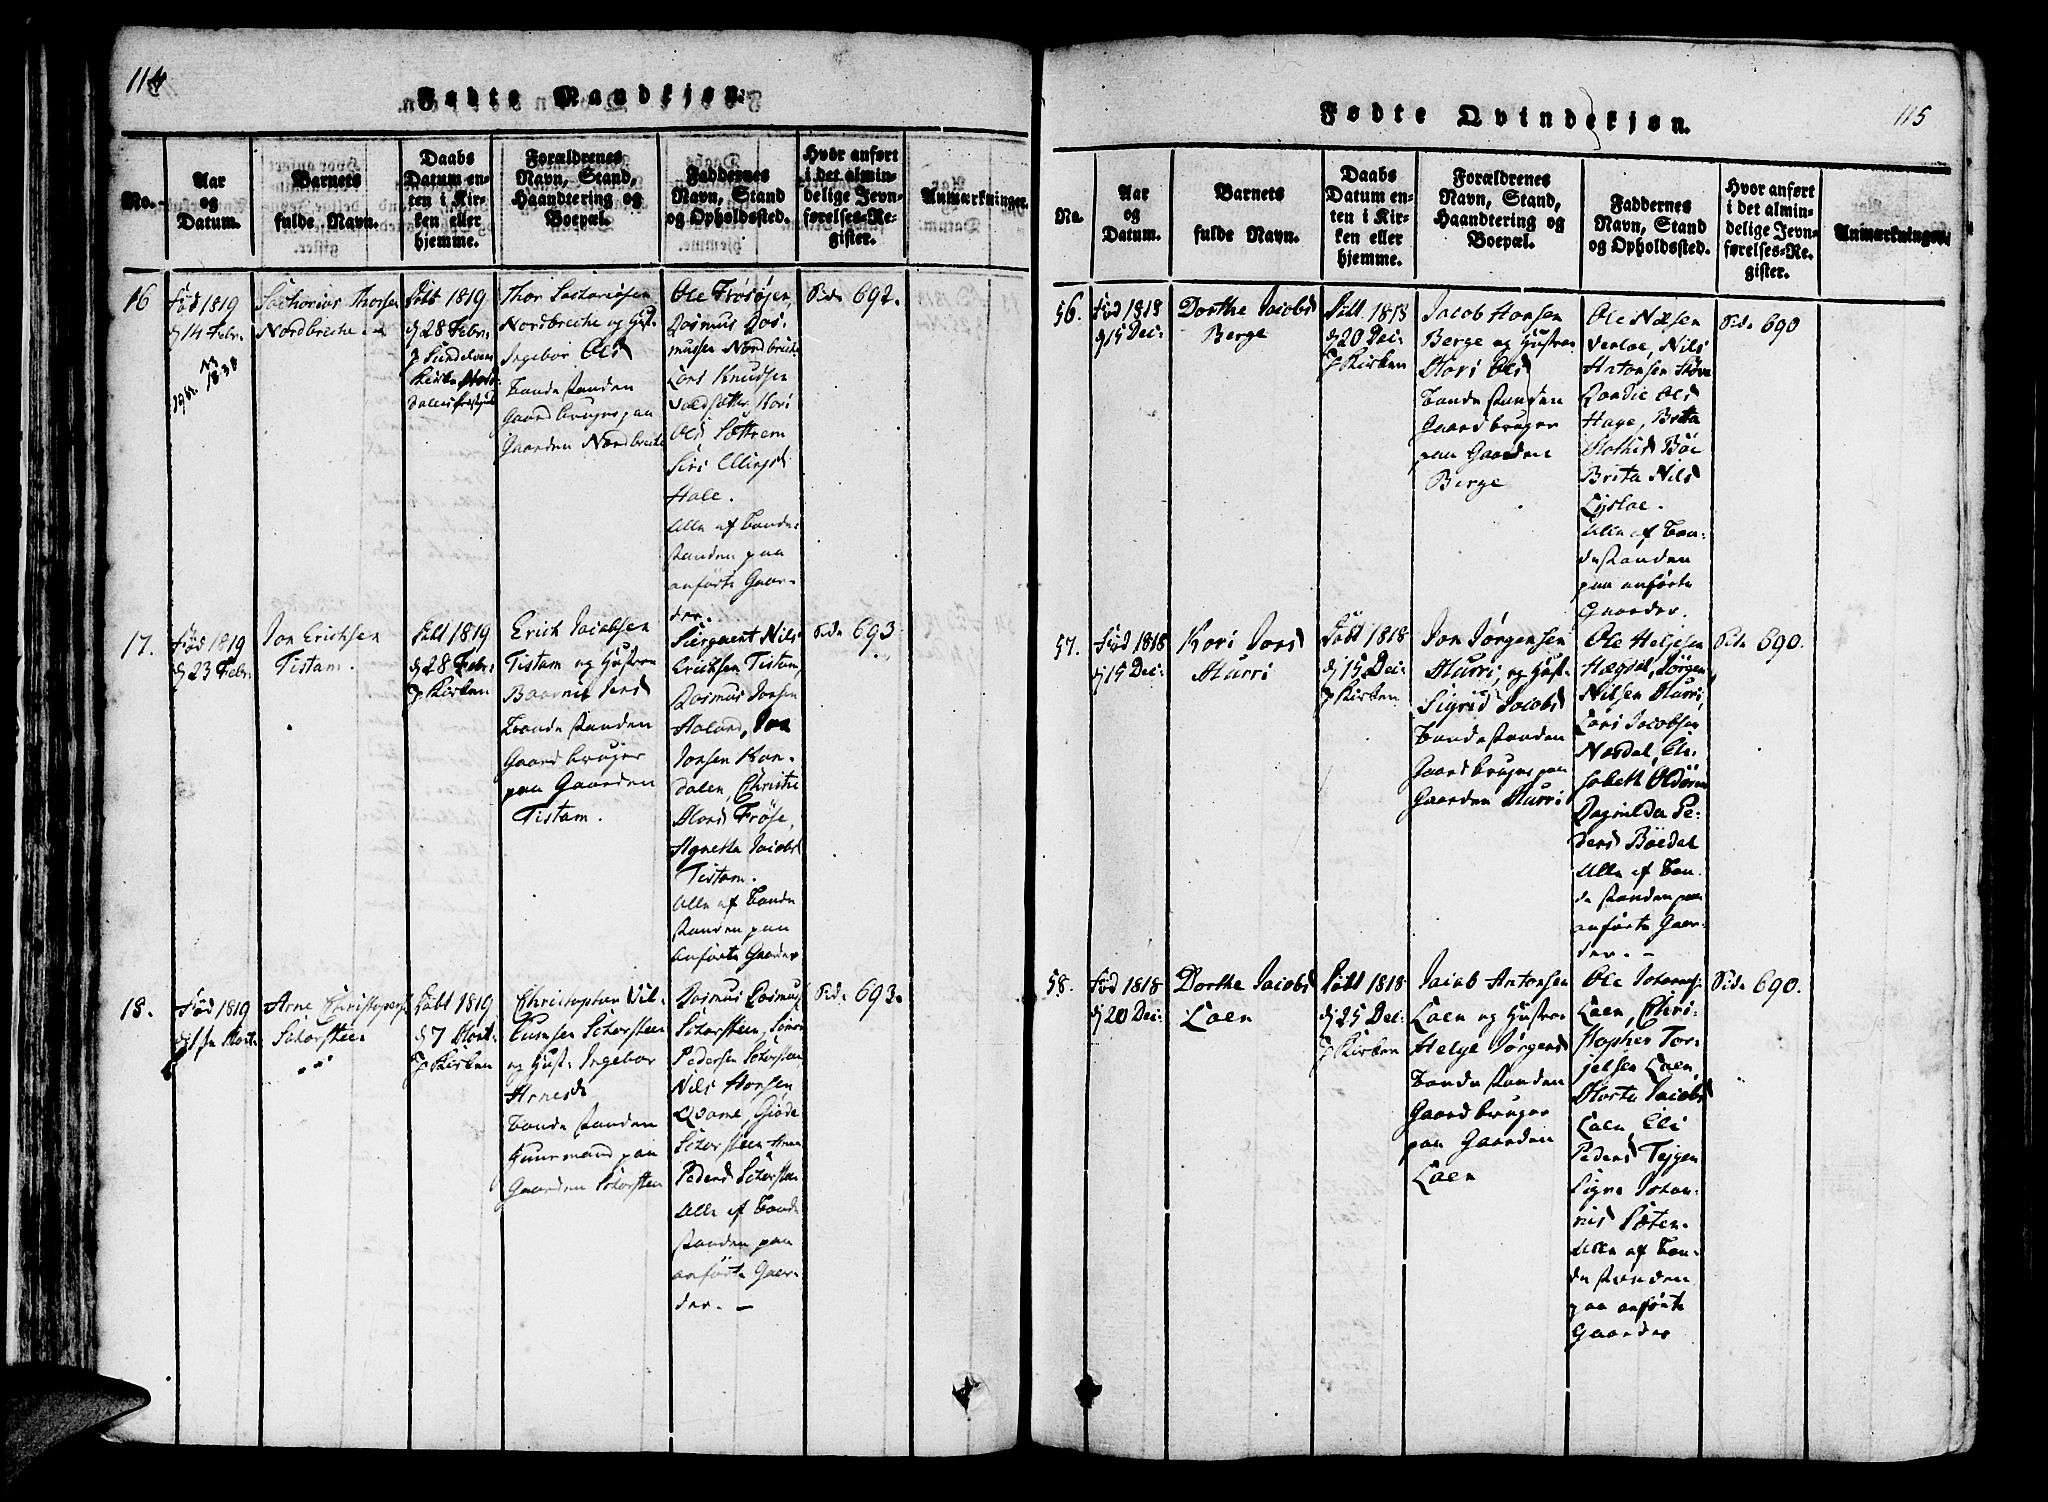 114
Fødte Mandkjøn.
No.
Aar
og
Datum.
Barnets
fulde Navn.
Daabs
Datum en-
ten i Kir-
ken eller
hjemme.
Forældrenes
Navn, Stand,
Haandtering og
Boepæl.
Faddernes
Navn, Stand
og Opholdssted.
Hvor anført
i det almin-
delige Jevn-
førelses-Re-
gister.
Anmærkninger.
16
Fød 1819
d 14 Febr:
1838
Sachorias Thorsen
Nordbreche
Døbt 1819
d 28 Febr:
Thor Sachoriesen
Nordbreche og Hust:
Ingebor Ols
Bondestanden
Gaardbruger paa
Gaarden Nordbreche
Ole Frøsøjen,
Rasmus Ras-
mussen Nordbreche
Lars Knudsen
Kari
Ols Sættrem
Siri Ellings
Hole.
Alle af Bonde-
standen paa
anførte Gaar-
der.
Side 692.
17.
Fød 1819
d 23 Febr:
Jon Erichsen
Tistam.
Døbt 1819
d 28 Febr:
J Kirken
Erich Jacobsen
Tistam og Hustroe
Jens
Bondestanden
Gaardbruger
paa Gaarden
Tistam.
Siergient Nils
Ericksen Tistam,
Rasmus Jonsen
Haland, Jon
Jonsen Kon-
dalen, Christie
Mons Frøse,
Agnetha Jacobs
Tistam.
Alle af Bonde
standen paa
anførte Gaarder
Side 693.
18.
Fød 1819
d 1ste Mart:
Arne Christophers:
Schorsteen
Døbt 1819
d 7 Mart:
J Kirken
Christophen Vil-
lumsen Schorsteen
og Hust: Ingebor
Arnesd
Bondestanden
Huusmand paa
Gaarden Schorsteen
Rasmus Rasmus
Schorsteen, Simon
Pedersen Schorsteen
Nils Hansen
Qvame, Giøde
Schorsteen Anna
Peders Schorsteen
Alle af Bonde
standen paa
anførte Gaar-
der. —
Side 693.
115
Fødte Qvindekjøn.
No.
Aar
og
Datum.
Barnets
fulde Navn.
Daabs
Datum en-
ten i Kir-
ken eller
hjemme.
Forældrenes
Navn, Stand,
Haandtering og
Boepæl.
Faddernes
Navn, Stand
og Opholdssted.
Hvor anført
i det almin-
delige Jevn-
førelses-Re-
gister.
Anmærkninger.
56.
Fød 1818
d 15 Dec:
Dorthe Jacobs
Berge
Døbt 1818
d 20 Dec:
J Kirken
Jacob Hansen
Berge og Hustroe
Mari Ols
Bondestanden
Gaardbruger
paa Gaarden
Berge
Ole Næsen
Verloe, Nils
Antonsen Støve
Randie Ols
Hage, Brita
Mathis Böe
Brita Nils
Lysloe.
Alle af Bon-
destanden
paa anførte
Gaarder.
Side 690
57.
Fød 1818
d 15 Dec:
Kari Jons
Murri
Døbt 1818
d 15 Dec:
J Kirken
Jon Jørgensen
Murri, og Hust:
Sigrid Jacobs
Bondestanden
Gaardbruger paa
Gaarden Murri
Ole Helgesen
Hægdal, Jørgen
Nilsen Murri,
Lars Jacobsen
Nosdal, Eli-
sabeth Oldøren
Ragnilda Pe-
ders Böedal
Alle af Bon-
destanden paa
anførte Gaar-
der. —
Side 690.
58.
Fød 1818
d 20 Dec:
Dorthe Jacobs
Loen
Døbt 1818
d 25 Dec:
J Kirken
Jacob Antonsen
Loen og Hustroe
Helge Jørgens
Bondestanden
Gaardbruger
paa Gaarden
Loen
Ole Johans:
Loen, Chri-
stopher Tor-
jelsen Loen,
Marta Jacobs
Loen, Eli
Peders Tejgen
Signe Johan-
nis Sæten.
Alle af Bon-
destanden
paa anførte
Gaarder
Side 690.